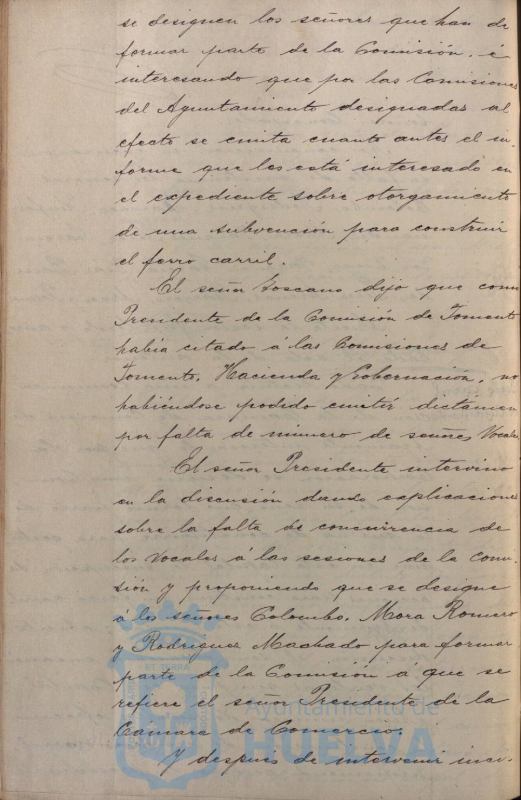 se designen los señores que han de
formar parte de la Comisión, é
interesando que por las Comisiones
del Ayuntamiento designadas al
efecto se emita cuanto antes el in-
forme que les está interesado en
el expediente sobre otorgamiento
de una subvención para construir
el ferro carril.
El señor Toscano dijo que como
Presidente de la Comisión de Fomento
había citado á las Comisiones de
Fomento, Hacienda y Gobernación, no
habiéndose podido emitir dictámen
por falta de número de señores Vocales
El señor Presidente intervino
en la discusión dando explicaciones
sobre la falta de concurrencia de
los Vocales á las sesiones de la Comi-
sión y proponiendo que se designe
á los señores Colombo, Mora Romero
y Rodriguez Machado para formar
parte de la Comisión á que se
refiere el señor Presidente de la
Cámara de Comercio.
Y después de intervenir inci-
Ayuntamiento de
HUELVA